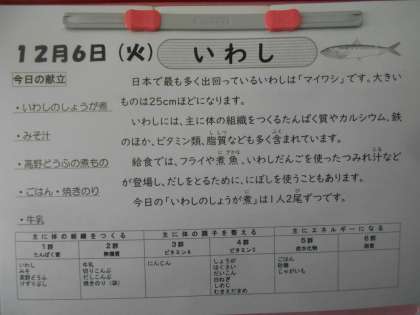 12月6日（火） いわし
今日の献立
・いわしのしょうが煮
・みそ汁
・高野どうふの煮もの
・ごはん・焼きのり
・牛乳
日本で最も多く出回っているいわしは「マイワシ」です。大きい
ものは25cmほどになります。
いわしには、主に体の組織をつくるたんぱく質やカルシウム、鉄
のほか、ビタミン類、脂質なども多く含まれています。
給食では、フライや煮魚、いわしだんごを使ったつみれ汁など
が登場し、だしをとるために、にぼしを使うこともあります。
今日の「いわしのしょうが煮」は1人2尾ずつです。
主に体の組織をつくる 主に体の調子を整える 主にエネルギーになる
1群 2群 3群 4群 5群 6群
たんぱく質 無機質 ビタミンA ビタミンC 炭水化物 脂肪
いわし 牛乳 にんじん しょうが ごはん
みそ 切りこんぶ はくさい 砂糖
高野どうふ だしこんぶ だいこん じゃがいも
けずりぶし 焼きのり（袋） 白ねぎ
しめじ
むきえだまめ